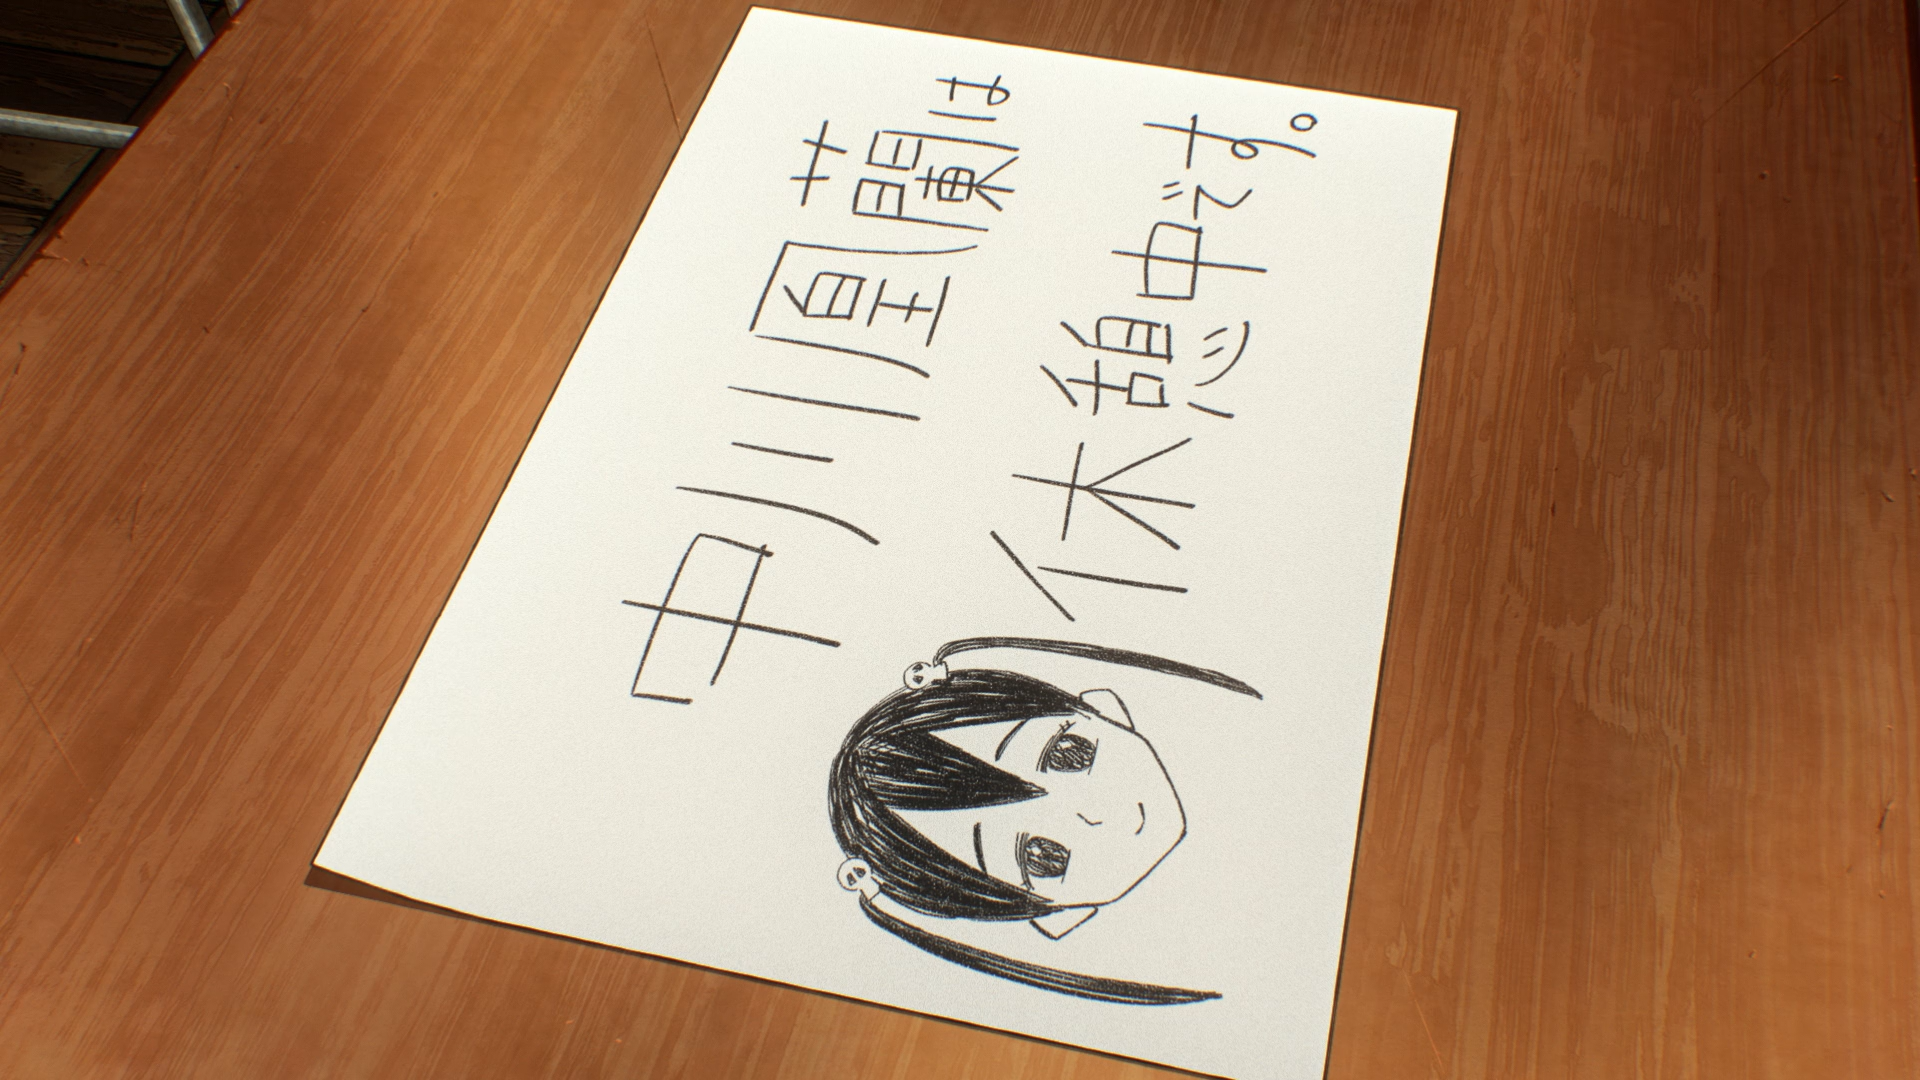 中川凰蘭は
休憩中です。